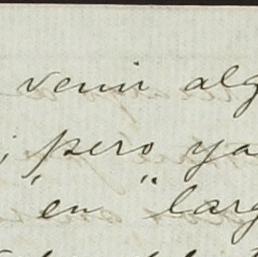 venir alg
; pero ya
"en "larg